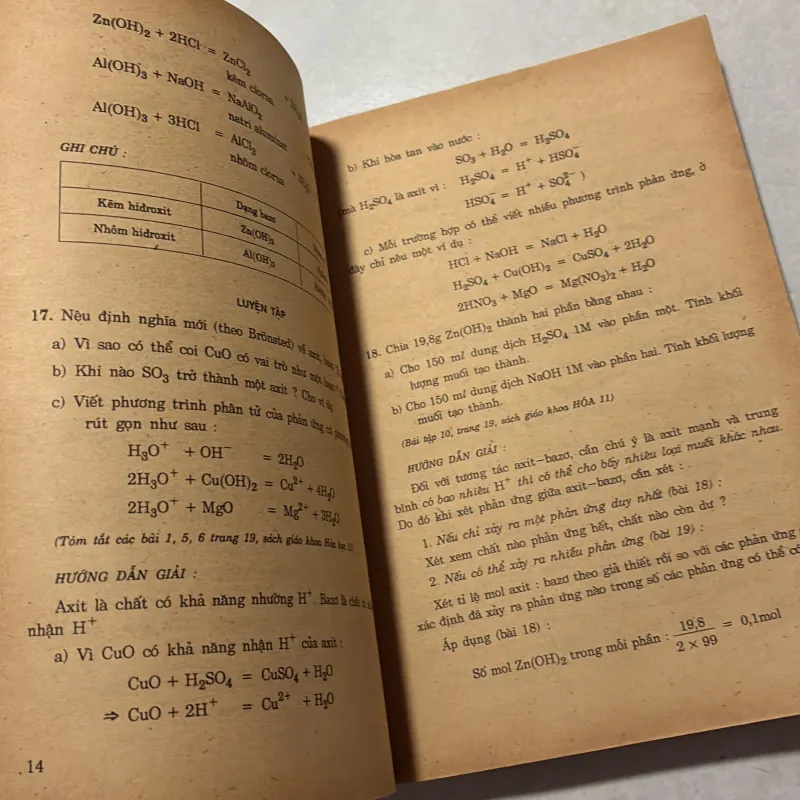 Zn(OH)₂ + 2HCl = ZnCl₂
kẽm clorua
Al(OH)₃ + NaOH = NaAlO₂
natri aluminat
Al(OH)₃ + 3HCl = AlCl₃
nhôm clorua
GHI CHÚ :
Dạng bazơ
Kẽm hidroxit Zn(OH)₂
Nhôm hidroxit Al(OH)₃
LUYỆN TẬP
17. Nêu định nghĩa mới (theo Brönsted) về axit, bazơ
a) Vì sao có thể coi CuO có vai trò như một bazơ
b) Khi nào SO₃ trở thành một axit ? Cho ví dụ
c) Viết phương trình phân tử của phản ứng có phương
rút gọn như sau :
H₃O⁺ + OH⁻ = 2H₂O
2H₃O⁺ + Cu(OH)₂ = Cu²⁺ + 4H₂O
2H₃O⁺ + MgO = Mg²⁺ + 3H₂O
(Tóm tắt các bài 1, 5, 6 trang 19, sách giáo khoa Hóa học 11)
HƯỚNG DẪN GIẢI :
Axit là chất có khả năng nhường H⁺. Bazơ là chất có
nhận H⁺
a) Vì CuO có khả năng nhận H⁺ của axit :
CuO + H₂SO₄ = CuSO₄ + H₂O
⇒ CuO + 2H⁺ = Cu²⁺ + H₂O
14
b) Khi hòa tan vào nước :
SO₃ + H₂O = H₂SO₄
(mà H₂SO₄ là axit vì : H₂SO₄ = H⁺ + HSO₄⁻
HSO₄⁻ = H⁺ + SO₄²⁻ )
c) Mỗi trường hợp có thể viết nhiều phương trình phản ứng, ở
đây chỉ nêu một ví dụ :
HCl + NaOH = NaCl + H₂O
H₂SO₄ + Cu(OH)₂ = CuSO₄ + 2H₂O
2HNO₃ + MgO = Mg(NO₃)₂ + H₂O
18. Chia 19,8g Zn(OH)₂ thành hai phần bằng nhau :
a) Cho 150 ml dung dịch H₂SO₄ 1M vào phần một. Tính khối
lượng muối tạo thành.
b) Cho 150 ml dung dịch NaOH 1M vào phần hai. Tính khối lượng
muối tạo thành.
(Bài tập 10, trang 19, sách giáo khoa HÓA 11)
HƯỚNG DẪN GIẢI :
Đối với tương tác axit–bazơ, cần chú ý là axit mạnh và trung
bình có bao nhiêu H⁺ thì có thể cho bấy nhiêu loại muối khác nhau.
Do đó khi xét phản ứng giữa axit–bazơ, cần xét :
1. Nếu chỉ xảy ra một phản ứng duy nhất (bài 18) :
Xét xem chất nào phản ứng hết, chất nào còn dư ?
2. Nếu có thể xảy ra nhiều phản ứng (bài 19) :
Xét tỉ lệ mol axit : bazơ theo giả thiết rồi so với các phản ứng
xác định đã xảy ra phản ứng nào trong số các phản ứng có thể có
Áp dụng (bài 18) :
Số mol Zn(OH)₂ trong mỗi phần : 19,8 / 2 × 99 = 0,1mol